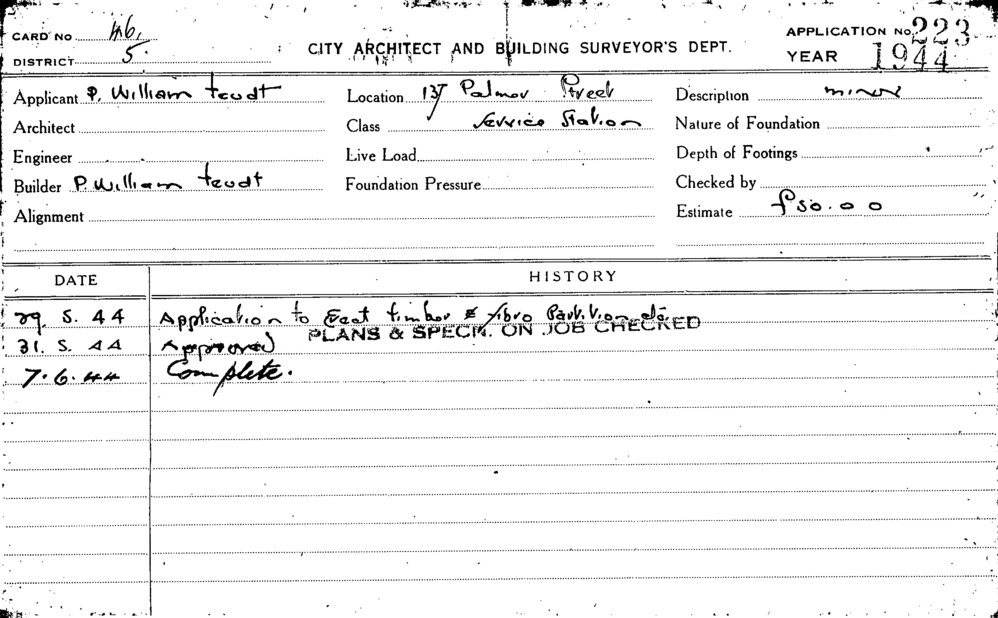 CARD No 46.
DISTRICT 5.
CITY ARCHITECT AND BUILDING SURVEYOR'S DEPT.
APPLICATION No 223
YEAR 1944
Applicant P. William Teudt
Location 137 Palmer Street
Description minor
Architect
Class Service Station
Nature of Foundation
Engineer
Live Load
Depth of Footings
Builder P. William Teudt
Foundation Pressure
Checked by
Alignment
Estimate £50.0 0
DATE HISTORY
29. 5. 44 Application to Erect timber & fibro Partition etc
PLANS & SPECN. ON JOB CHECKED
31. 5. 44 Approved
7. 6. 44 Complete.